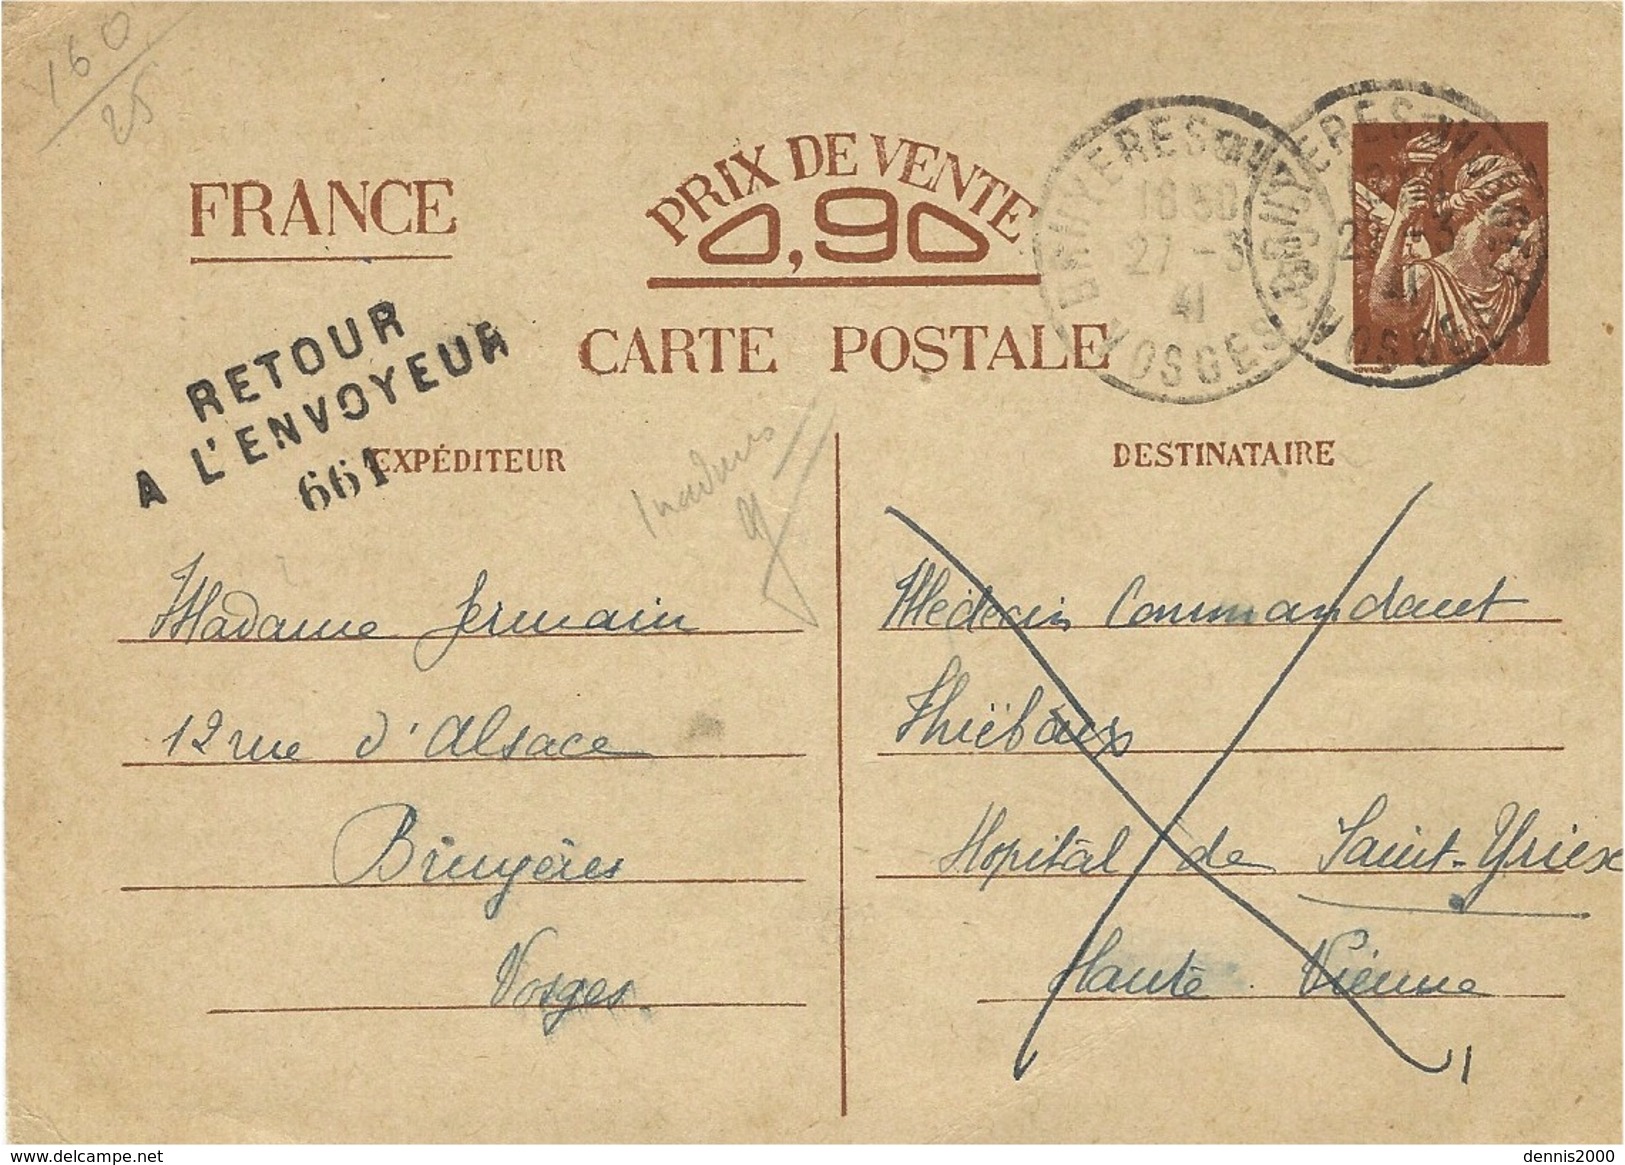 160
25
FRANCE
PRIX DE VENTE
0,90
CARTE POSTALE
BRUYERES
16 30
27 -3
41
VOSGES
RETOUR
A L'ENVOYEUR
661
EXPÉDITEUR
DESTINATAIRE
Madame Germain
12 rue d'Alsace
Bruyères
Vosges.
Médecin Commandant
Thiébaux
Hopital de Saint-Yrieix
Haute Vienne
delcampe.net
dennis2000